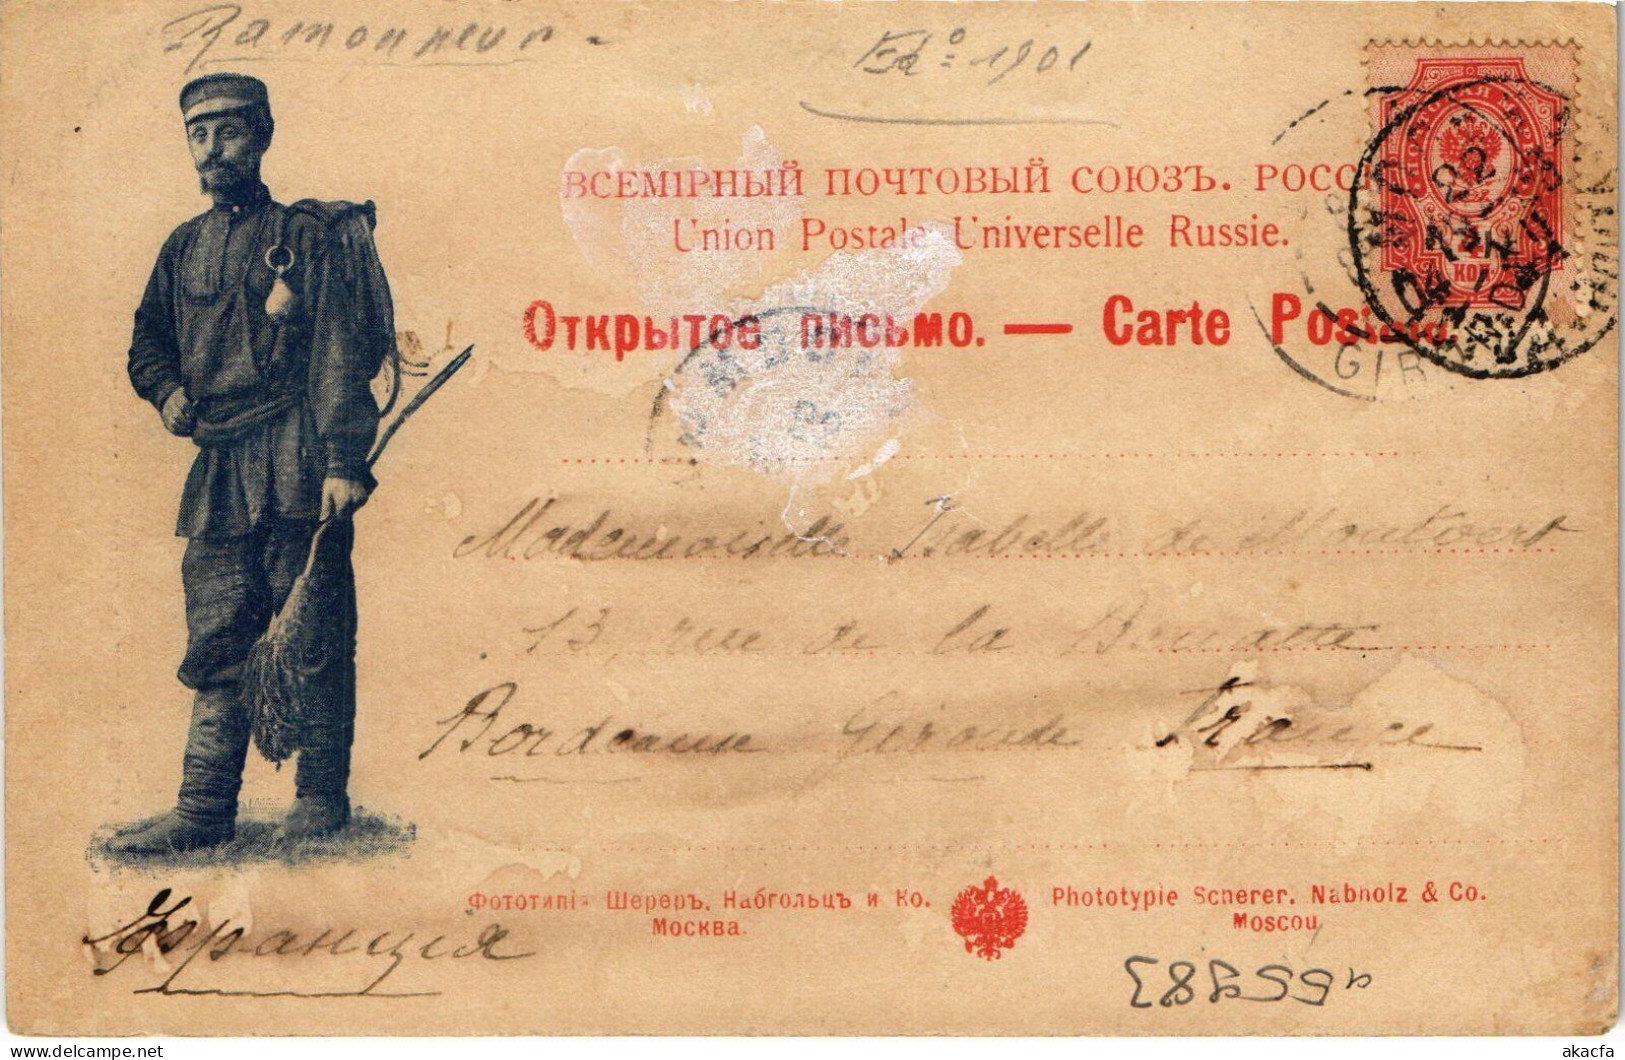 Ramonneur.
1901
ВСЕМІРНЫЙ ПОЧТОВЫЙ СОЮЗЪ. РОСС
Union Postale Universelle Russie.
Открытое письмо. — Carte Postale.
Mademoiselle Isabelle de Montvert
13, rue de la
Bordeaux Gironde France
Франція
Фототипія Шереръ, Набгольцъ и Ко.
Москва.
Phototypie Scherer, Nabholz & Co.
Moscou
КОП.
22
GIR
a55983
akacfa